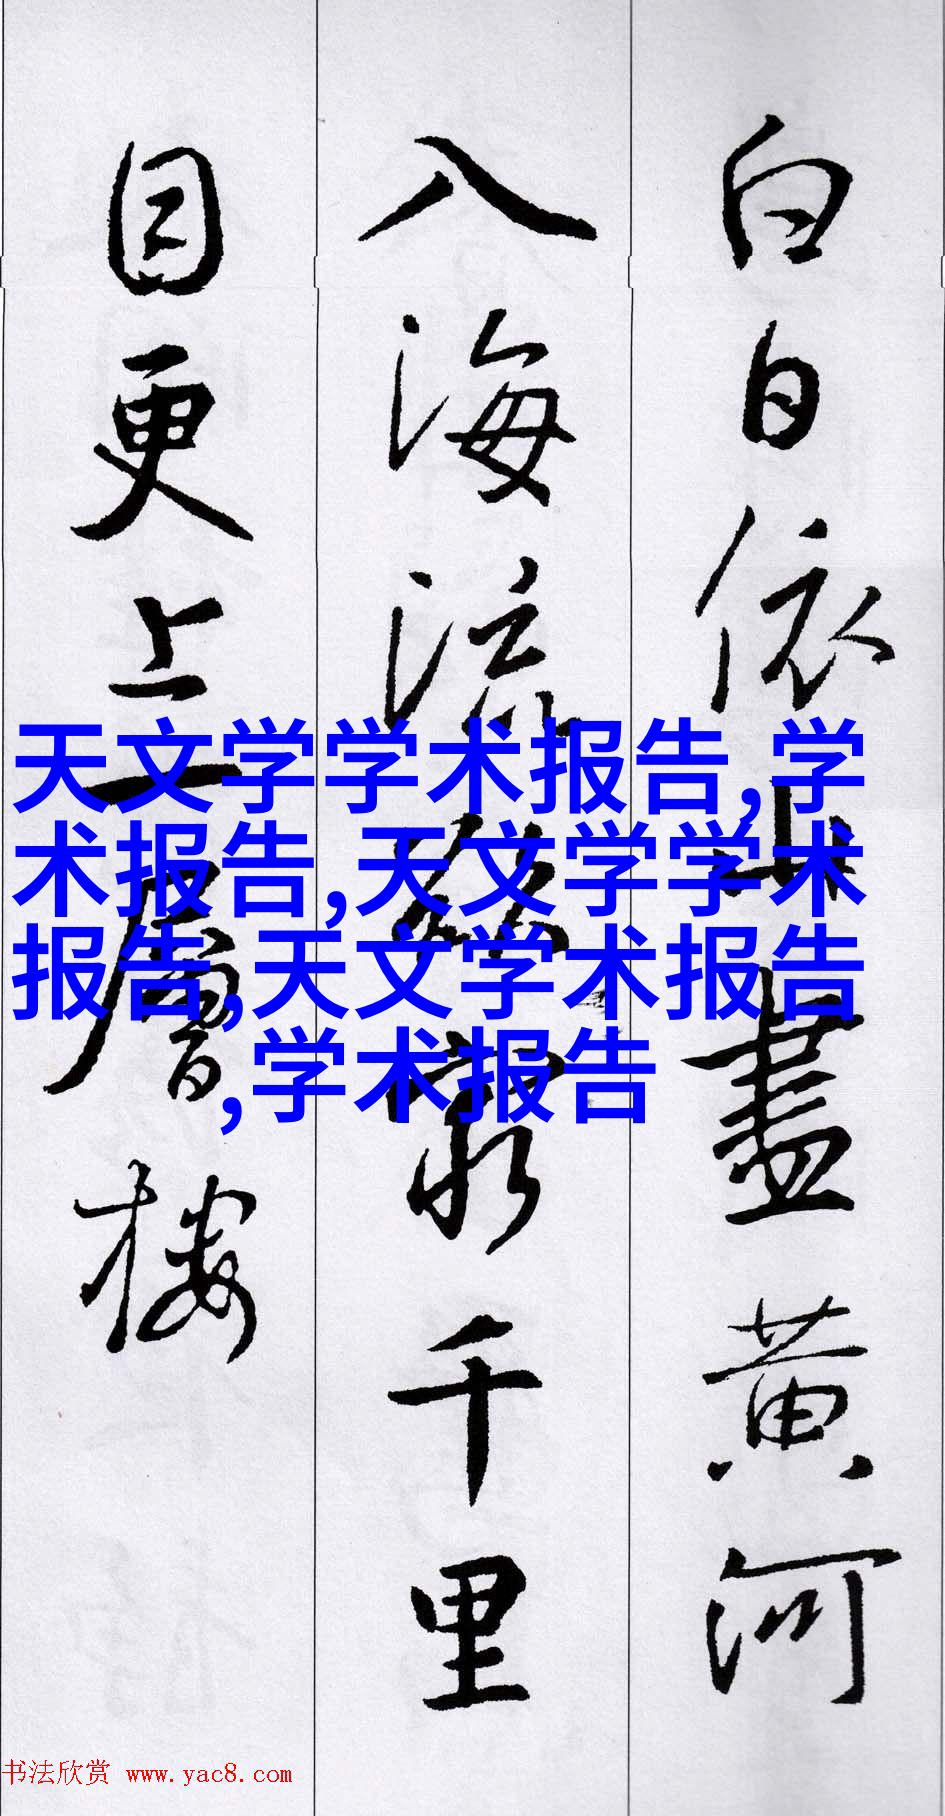 白日依山盡黄河
入海流欲窮千里
目更上一層樓
天文学学术报告,学
术报告,天文学学术
报告,天文学术报告
,学术报告
书法欣赏 www.yac8.com